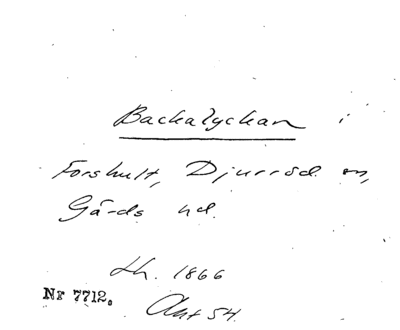 Backalyckan i
Forshult, Djurröd sn,
Gärds hd.
Lh. 1866
Nr 7712.
Akt 54.